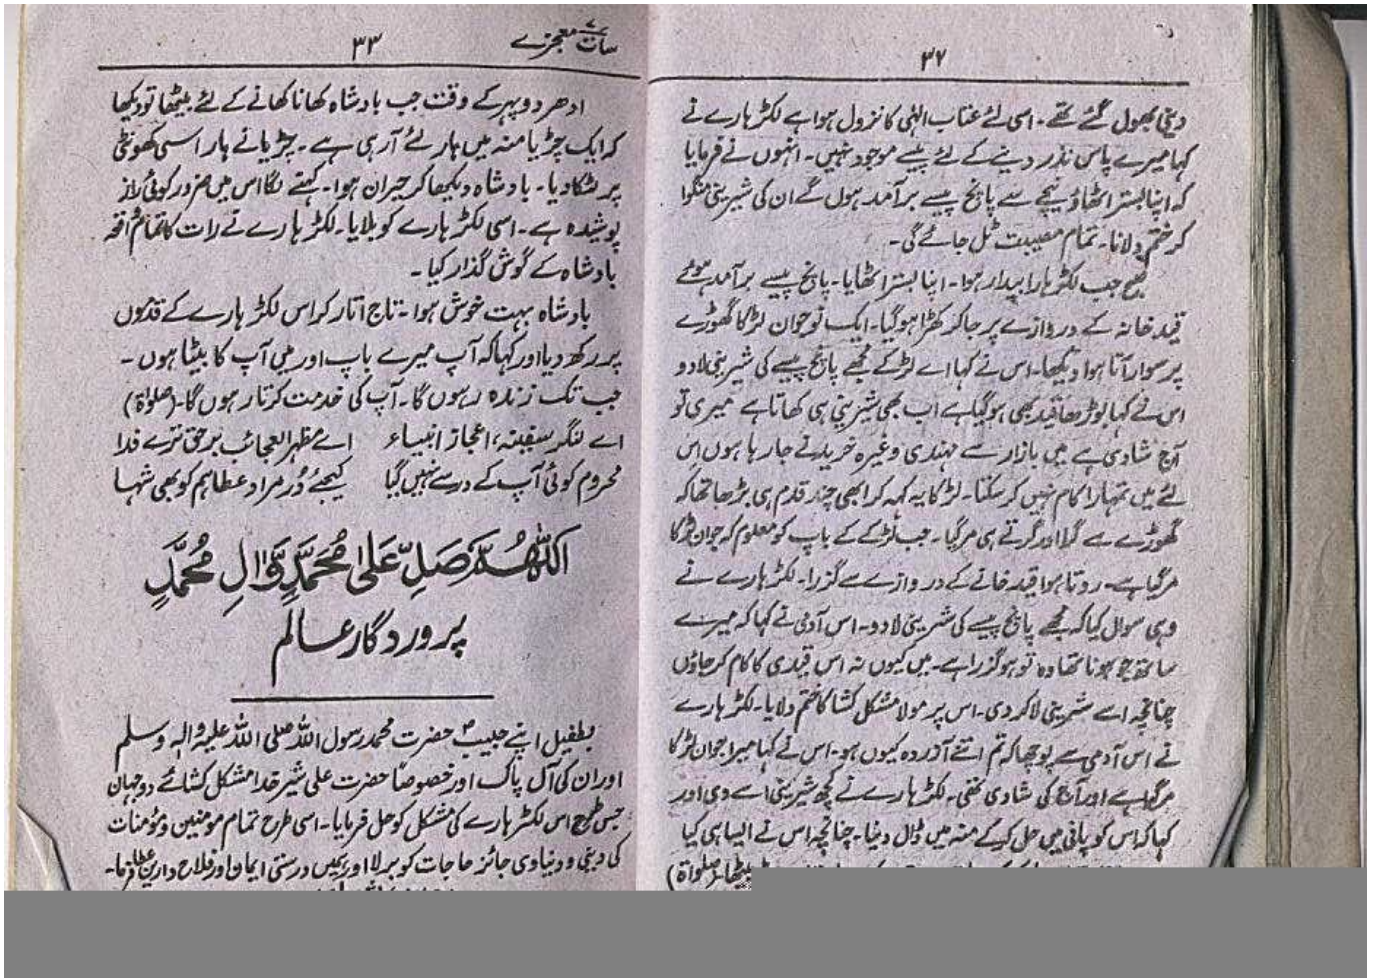 ۳۲
دینی بھول گئے تھے۔ اسی لئے عتاب الٰہی کا نزول ہوا ہے لکڑہارے نے
کہا میرے پاس نذر دینے کے لئے پیسے موجود نہیں۔ انہوں نے فرمایا
کہ اپنا بسترا اٹھاؤ نیچے سے پانچ پیسے برآمد ہوں گے ان کی شیرینی منگوا
کر ختم دلانا۔ تمام مصیبت ٹل جائے گی۔
صبح جب لکڑہارا بیدار ہوا۔ اپنا بسترا اٹھایا۔ پانچ پیسے برآمد ہوئے
قید خانہ کے دروازے پر جا کر کھڑا ہو گیا۔ ایک نوجوان لڑکا گھوڑے
پر سوار آتا ہوا دیکھا۔ اس نے کہا اے لڑکے مجھے پانچ پیسے کی شیرینی لا دو
اس نے کہا بوڑھا قید بھی ہو گیا ہے اب بھی شیرینی ہی کھاتا ہے میری تو
آج شادی ہے میں بازار سے مہندی وغیرہ خریدنے جا رہا ہوں اس
لئے میں تمہارا کام نہیں کر سکتا۔ لڑکا یہ کہہ کر ابھی چند قدم ہی بڑھا تھا کہ
گھوڑے سے گرا اور گرتے ہی مر گیا۔ جب لڑکے کے باپ کو معلوم کہ جوان لڑکا
مر گیا ہے۔ روتا ہوا قید خانے کے دروازے سے گزرا۔ لکڑہارے نے
وہی سوال کیا کہ مجھے پانچ پیسے کی شیرینی لا دو۔ اس آدمی نے کہا کہ میرے
ساتھ جو ہونا تھا وہ تو ہو گزرا ہے۔ میں کیوں نہ اس قیدی کا کام کر جاؤں
چنانچہ اسے شرینی لا کر دی۔ اس پر مولا مشکل کشا کا ختم دلایا۔ لکڑہارے
نے اس آدمی سے پوچھا کہ تم اتنے آزردہ کیوں ہو۔ اس نے کہا میرا جوان لڑکا
مر گیا ہے اور آج کی شادی تھی۔ لکڑہارے نے کچھ شیرینی اسے دی اور
کہا کہ اس کو پانی میں حل کر کے منہ میں ڈال دینا۔ چنانچہ اس نے ایسا ہی کیا
بیٹھا۔ (صلواۃ)
سات معجزے ۳۳
ادھر دوپہر کے وقت جب بادشاہ کھانا کھانے کے لئے بیٹھا تو دیکھا
کہ ایک چڑیا منہ میں ہار لئے آ رہی ہے۔ چڑیا نے ہار اسی کھونٹی
پر لٹکا دیا۔ بادشاہ دیکھا کر حیران ہوا۔ کہنے لگا اس میں ضرور کوئی راز
پوشیدہ ہے۔ اسی لکڑہارے کو بلایا۔ لکڑہارے نے رات کا تمام واقعہ
بادشاہ کے گوش گذار کیا۔
بادشاہ بہت خوش ہوا۔ تاج اتار کر اس لکڑہارے کے قدموں
پر رکھ دیا اور کہا کہ آپ میرے باپ اور میں آپ کا بیٹا ہوں۔
جب تک زندہ رہوں گا۔ آپ کی خدمت کرتا رہوں گا۔ (صلواۃ)
اے لنگر سفینہ، اعجاز انبیاء اے مظہر العجائب برحق ترے فدا
محروم کوئی آپ کے در سے نہیں گیا کیجئے دُر مراد عطا ہم کو بھی شہا
اَللّٰهُمَّ صَلِّ عَلٰی مُحَمَّدٍ وَّاٰلِ مُحَمَّدٍ
پروردگار عالم
بطفیل اپنے حبیبؐ حضرت محمد رسول اللہ صلی اللہ علیہ وآلہ وسلم
اور ان کی آل پاک اور خصوصاً حضرت علی شیر خدا مشکل کشائے دو جہان
جس طرح اس لکڑہارے کی مشکل کو حل فرمایا۔ اسی طرح تمام مومنین و مؤمنات
کی دینی و دنیاوی جائز حاجات کو بر لا اور ہمیں درستی ایمان اور فلاح دارین عطا فرما۔